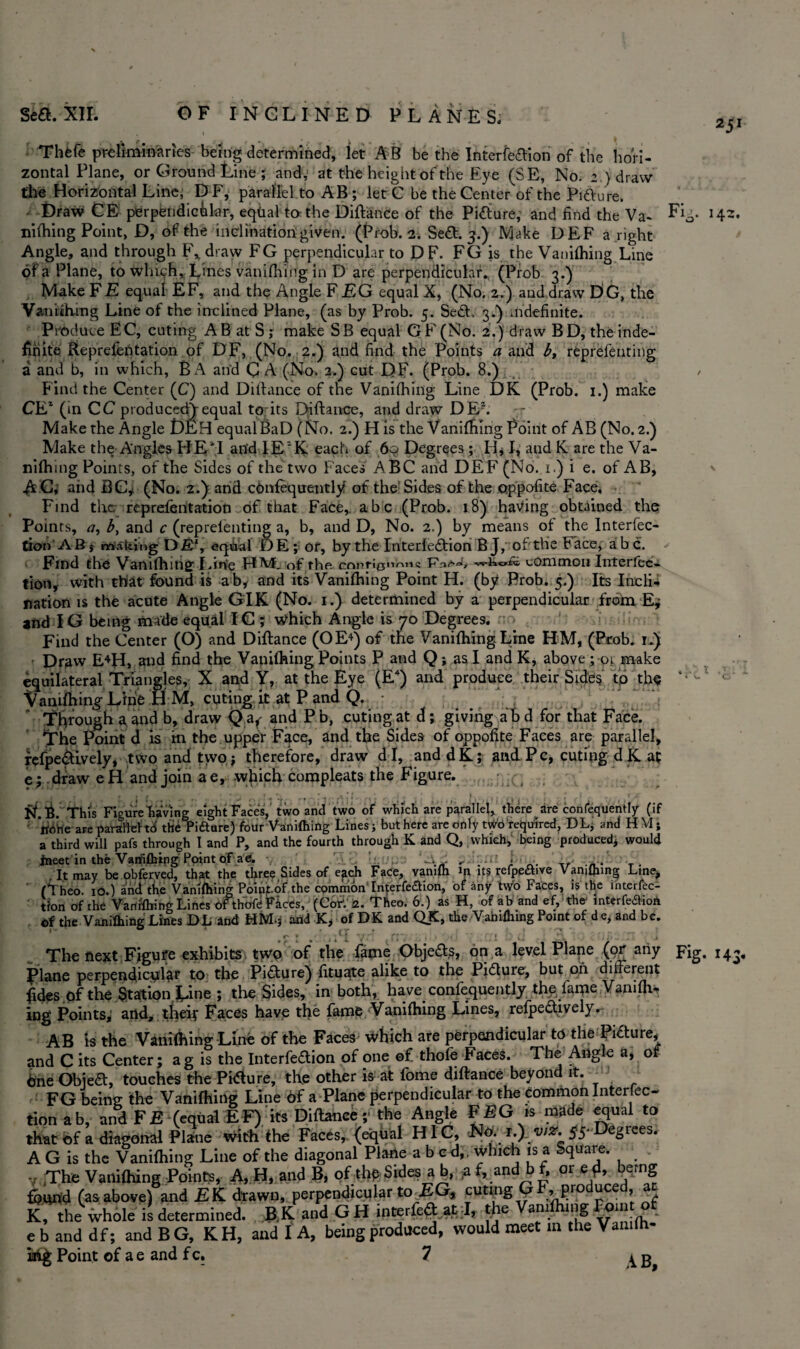 Sect. XII. OF INCLINED PLANES. 251
Theſe preliminaries being determined, let AB be the Interſection of the hori-
zontal Plane, or Ground Line; and, at the height of the Eye (SE, No. 2.) draw
the Horizontal Line, DF, parallel to AB; let C be the Center of the Picture.
Draw CE perpendicular, equal to the Diſtance of the Picture, and find the Va- Fig. 142.
niſhing Point, D, of the inclination given. (Prob. 2. Sect. 3.) Make DEF a right
Angle, and through F, draw FG perpendicular to DF. FG is the Vaniſhing Line
of a Plane, to which, Lines vaniſhing in D are perpendicular. (Prob. 3.)
Make FE equal EF, and the Angle FEG equal X, (No. 2.) and draw DG, the
Vaniſhing Line of the inclined Plane, (as by Prob. 5. Sect. 3.) indefinite.
Produce EC, cuting AB at S; make SB equal GF (No. 2.) draw BD, the inde-
finite Repreſentation of DF, (No. 2.) and find the Points a and b, repreſenting
a and b, in which, BA and CA (No. 2.) cut DF. (Prob. 8.)
Find the Center (C) and Diſtance of the Vaniſhing Line DK (Prob. 1.) make
CE² (in CC produced) equal to its Diſtance, and draw DE².
Make the Angle DEH equal BaD (No. 2.) H is the Vaniſhing Point of AB (No. 2.)
Make the Angles HE²I and IE²K each of 60 Degrees; H, I, and K are the Va-
niſhing Points, of the Sides of the two Faces ABC and DEF (No. 1.) i e. of AB,
AC, and BC, (No. 2.) and conſequently of the Sides of the oppoſite Face.
Find the repreſentation of that Face, abc (Prob. 18) having obtained the
Points, a, b, and c (repreſenting a, b, and D, No. 2.) by means of the Interſec-
tion AB; making DE², equal DE; or, by the Interſection BJ, of the Face, abc.
Find the Vaniſhing Line HM of the contiguous Face, whoſe common Interſec-
tion, with that found is ab, and its Vaniſhing Point H. (by Prob. 5.) Its Incli-
nation is the acute Angle GIK (No. 1.) determined by a perpendicular from E,
and IG being made equal IC; which Angle is 70 Degrees.
Find the Center (O) and Diſtance (OE⁴) of the Vaniſhing Line HM, (Prob. 1.)
Draw E⁴H, and find the Vaniſhing Points P and Q; as I and K, above; or make
equilateral Triangles, X and Y, at the Eye (E⁴) and produce their Sides to the
Vaniſhing Line HM, cuting it at P and Q.
Through a and b, draw Qa, and Pb, cuting at d; giving abd for that Face.
The Point d is in the upper Face, and the Sides of oppoſite Faces are parallel,
reſpectively, two and two; therefore, draw dI, and dK; and Pc, cuting dK at
e; draw eH and join ae, which compleats the Figure.
N. B. This Figure having eight Faces, two and two of which are parallel, there are conſequently (if
none are parallel to the Picture) four Vaniſhing Lines; but here are only two required, DL, and HM;
a third will paſs through I and P, and the fourth through K and Q, which, being produced, would
meet in the Vaniſhing Point of ae.
It may be obſerved, that the three Sides of each Face, vaniſh in its reſpective Vaniſhing Line,
(Theo. 10.) and the Vaniſhing Point of the common Interſection, of any two Faces, is the interſec-
tion of the Vaniſhing Lines of thoſe Faces, (Cor. 2. Theo. 6.) as H, of ab and ef, the interſection
of the Vaniſhing Lines DL and HM; and K, of DK and QK, the Vaniſhing Point of de, and bc.
The next Figure exhibits two of the ſame Objects, on a level Plane (or any Fig. 143.
Plane perpendicular to the Picture) ſituate alike to the Picture, but on different
ſides of the Station Line; the Sides, in both, have conſequently the ſame Vaniſh-
ing Points, and, their Faces have the ſame Vaniſhing Lines, reſpectively.
AB is the Vaniſhing Line of the Faces which are perpendicular to the Picture,
and C its Center; ag is the Interſection of one of thoſe Faces. The Angle a, of
one Object, touches the Picture, the other is at ſome diſtance beyond it.
FG being the Vaniſhing Line of a Plane perpendicular to the common Interſec-
tion ab, and FE (equal EF) its Diſtance; the Angle FEG is made equal to
that of a diagonal Plane with the Faces, (equal HIC, No. 1.) viz. 55 Degrees.
AG is the Vaniſhing Line of the diagonal Plane abcd, which is a Square.
The Vaniſhing Points, A, H, and B, of the Sides ab, af, and bf, or ed, being
found (as above) and EK drawn, perpendicular to EG, cuting GF, produced, at
K, the whole is determined. BK and GH interſect at I, the Vaniſhing Point of
eb and df; and BG, KH, and IA, being produced, would meet in the Vaniſh-
ing Point of ae and fc. 7 AB,